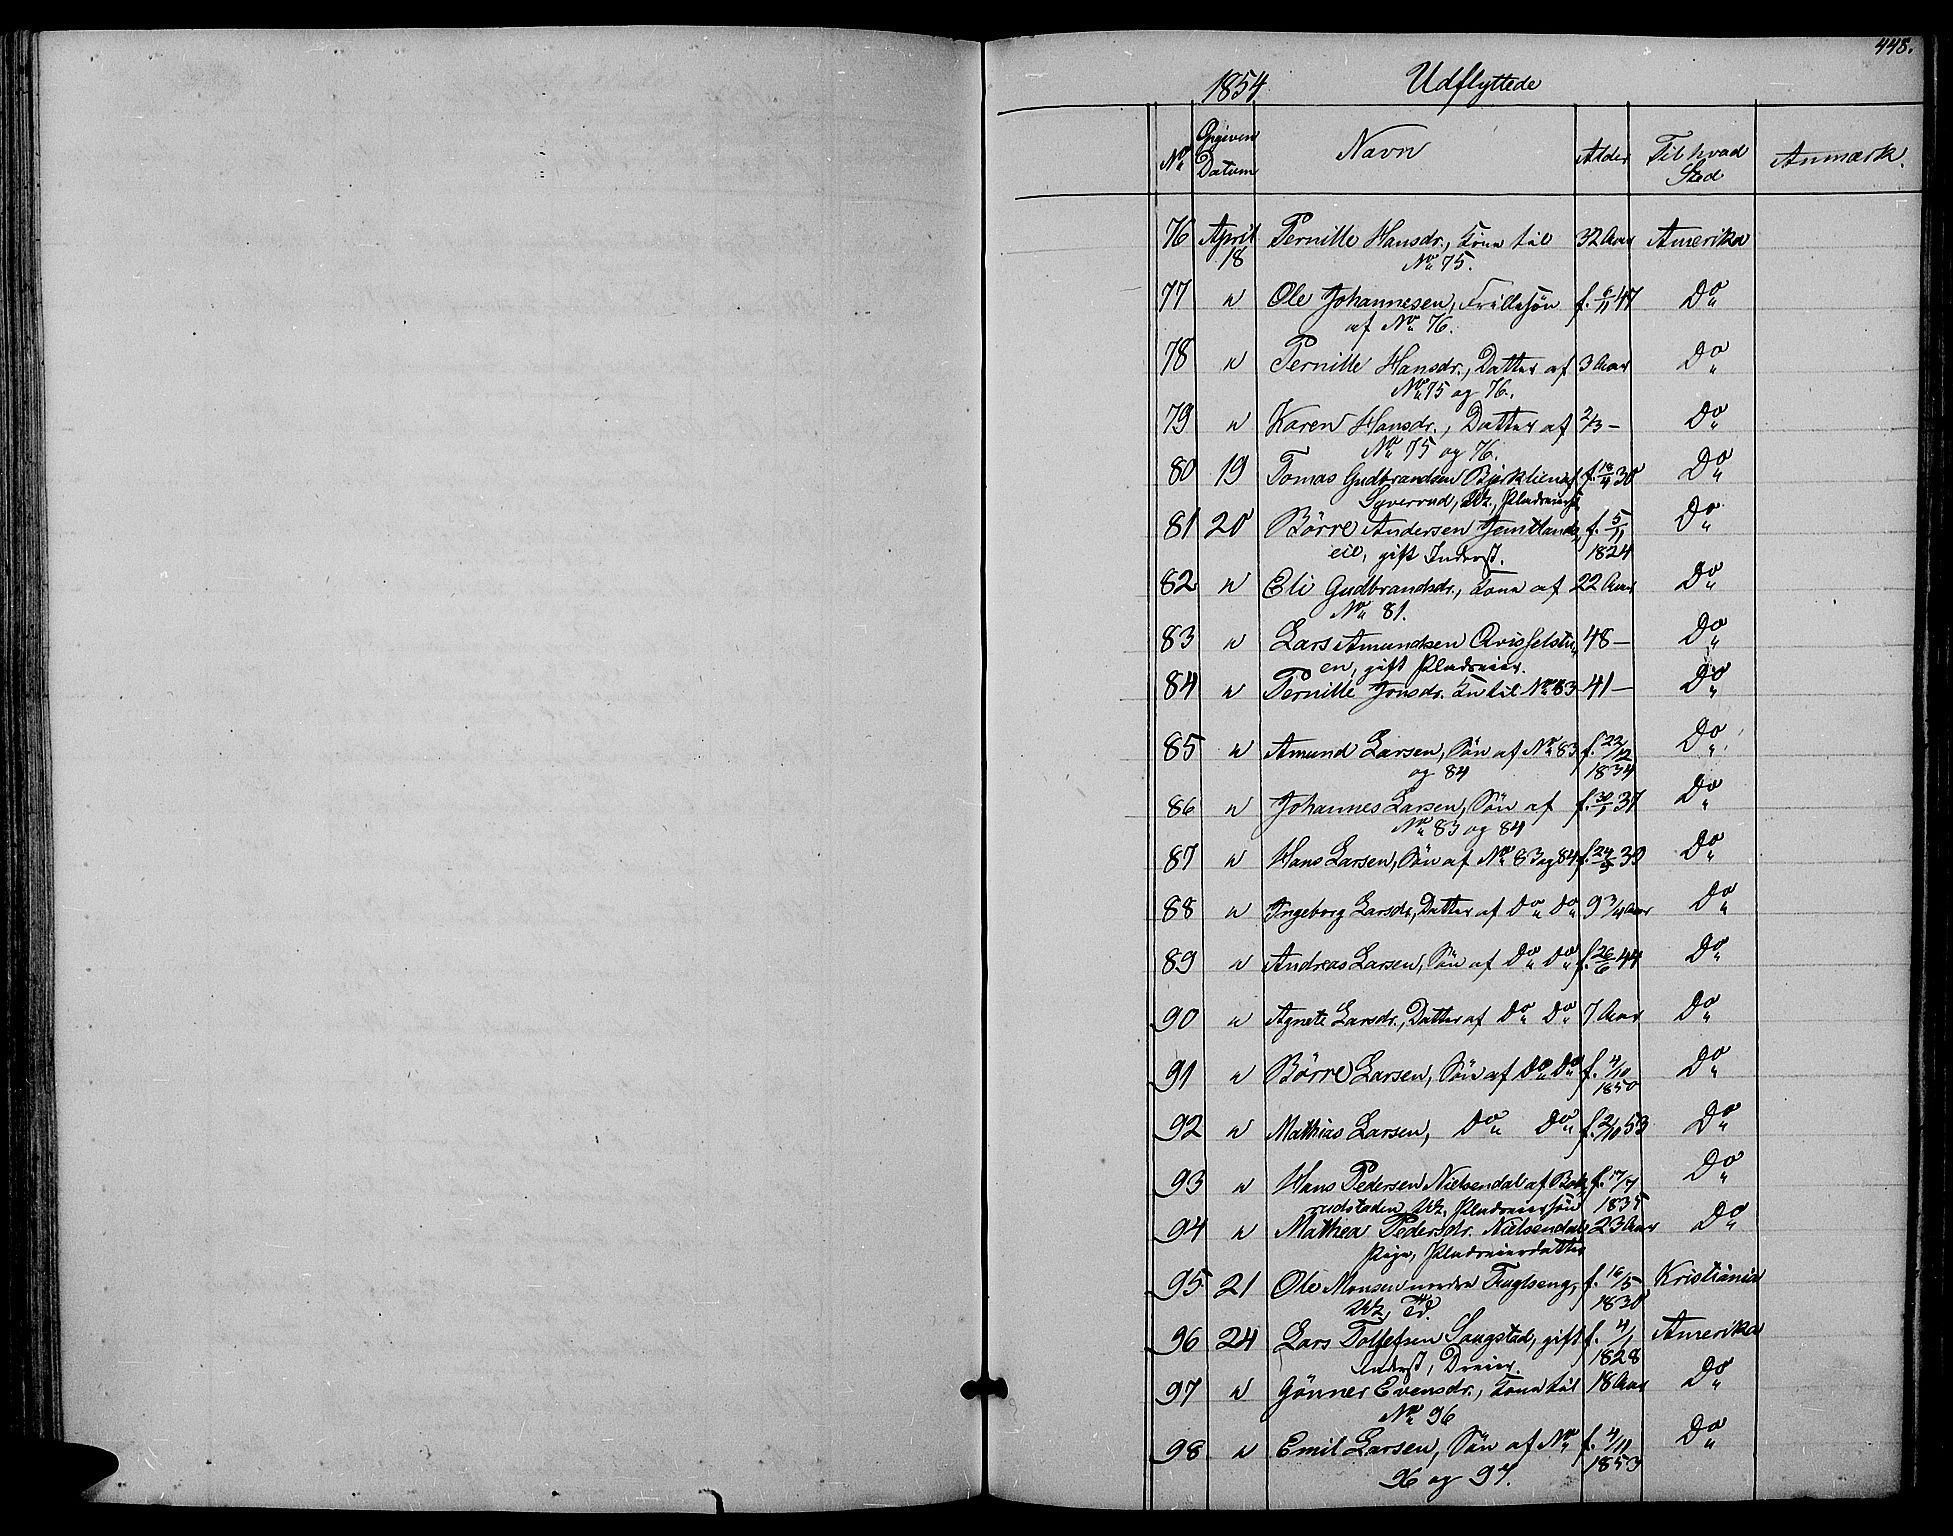 448.
1854 Udflyttede
No Opgiven Datum Navn Alder Til hvad Sted Anmærk.
76 April 18 Pernille Hansdr., Kone til 32 Aar Amerika
No 75.
77 " Ole Johannesen, Frillesön f. 6/11 47 Do
af No 76.
78 " Pernille Hansdr., Datter af 3 Aar Do
No 75 og 76.
79 " Karen Hansdr., Datter af 2/3 — Do
No 75 og 76.
80 19 Tomas Gudbrandsen Bjerklien af f. 18/4 30 Do
Syverrud, Uk., Pladseiers.
81 20 Börre Andersen Jemtlands f. 5/11 Do
eie, gift Inderst. 1824
82 " Eli Gudbrandsdr., Kone af 22 Aar Do
No 81.
83 " Lars Amundsen 48 — Do
en, gift Pladseier.
84 " Pernille Jonsdr. Kn til No 83 41 — Do
85 " Amund Larsen, Sön af No 83 f. 22/12 Do
og 84 1834
86 " Johannes Larsen, Sön af f. 30/1 37 Do
No 83 og 84
87 " Hans Larsen, Sön af No 83 og 84 f. 24/3 39 Do
88 " Ingeborg Larsdr, Datter af Do Do 9 3/4 Aar Do
89 " Andreas Larsen, Sön af Do Do f. 26/6 44 Do
90 " Agnete Larsdr., Datter af Do Do 7 Aar Do
91 " Börre Larsen, Sön af Do Do f. 4/10 Do
1850
92 " Mathias Larsen, Do Do f. 2/10 53 Do
93 " Hans Pedersen Nielsendal af f. 17/7 Do
Uk., Pladseiersön 1835
94 " Mathea Pedersdr. Nielsendal 23 Aar Do
Pige, Pladseierdatter
95 21 Ole Monsen nordre Fuglseng, f. 16/5 Kristiania
Uk, 1830
96 24 Lars Tollefsen Saugstad, gift f. 4/1 Amerika
Inderst, Dreier. 1828
97 " Gönner Evensdr., Kone til 18 Aar Do
No 96
98 " Emil Larsen, Sön af No f. 4/11 Do
96 og 97. 1853